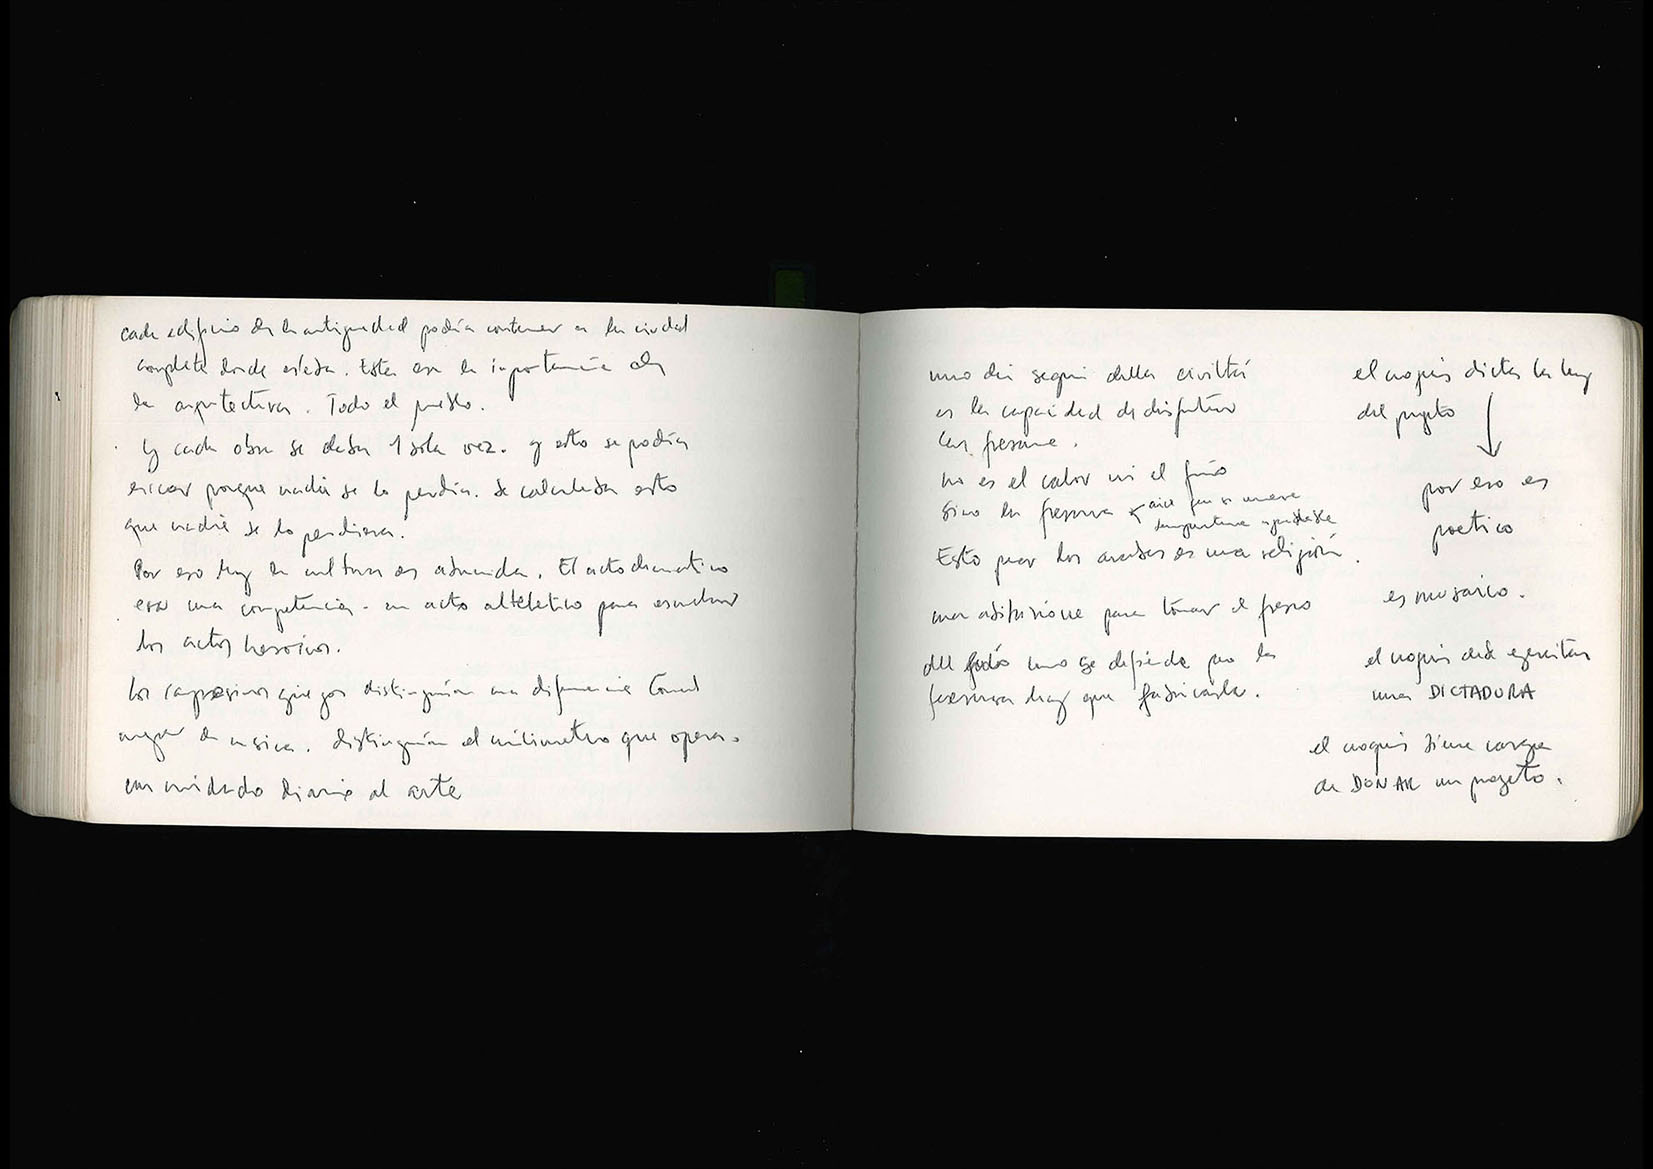 cada edificio de la antiguedad podía contener a la ciudad
completa donde estaba. Esta era la importancia de
la arquitectura. Todo el pueblo.
y cada obra se daba 1 sola vez. y esto se podía
porque nadie se lo perdía. Se calculaba esto
que nadie se lo perdiera.
Por eso hoy la cultura es aburrida. El acto dramatico
era una competencia. un acto para escuchar
los actos heroicos.
los campesinos griegos distinguían una diferencia tonal
de musica. distinguían el milimetro que opera.
un cuidado diario al arte
uno dei segni della civiltá
es la capacidad de disfrutar
la frescura.
no es el calor ni el frío
sino la frescura
aire que se mueve
temperatura agradable
Esto para los arabes es una religión.
una para tomar el fresco
del frío uno se defiende pero la
frescura hay que fabricarla.
el croquis dicta la ley
del proyecto
por eso es
poetico
es mosaico.
el croquis debe ejercitar
una DICTADURA
el croquis tiene cargo
de DONAR un progeto.